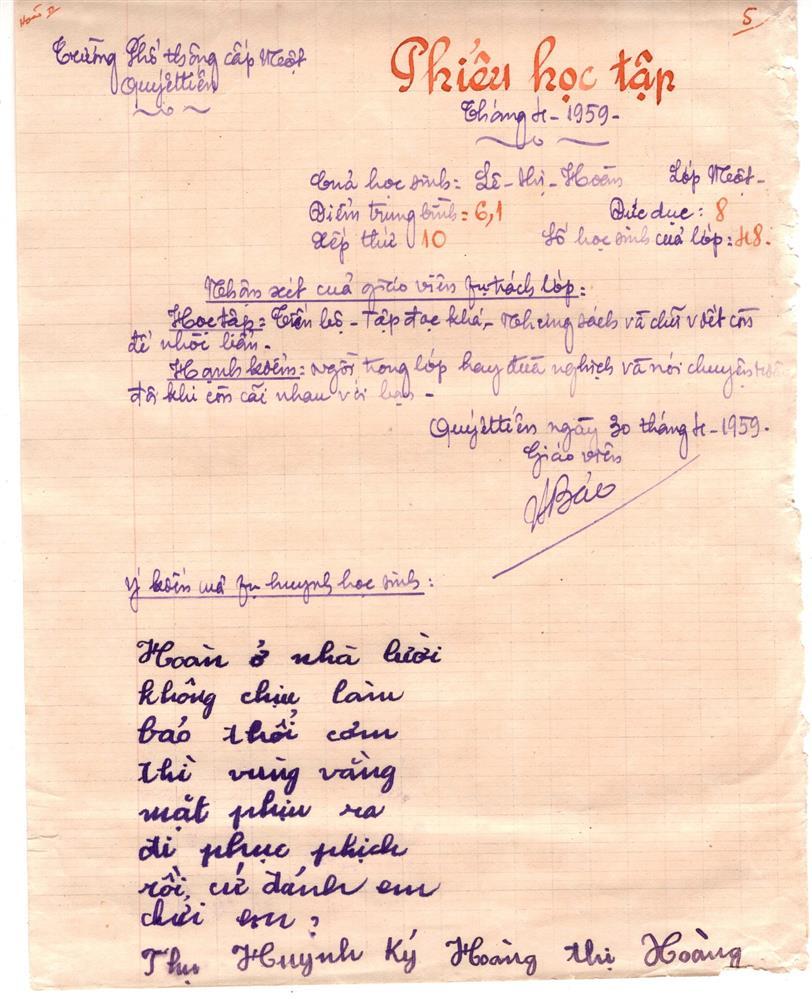 5
Trường Phổ thông cấp Một
Quyết tiến
Phiếu học tập
Tháng 4 - 1959 -
Của học sinh: Lê - thị - Hoàn Lớp Một -
Điểm trung bình: 6,1 Đức dục: 8
Xếp thứ 10 Số học sinh của lớp: 48.
Nhận xét của giáo viên fụ trách lớp:
Học tập: Tiến bộ - Tập đọc khá - Nhưng sách và chữ viết còn
để nhòi bẩn -
Hạnh kiểm: ngồi trong lớp hay đùa nghịch và nói chuyện
đôi khi còn cãi nhau với bạn -
Quyết tiến ngày 30 tháng 4 - 1959 -
Giáo viên
Bảo
Ý kiến của fụ huynh học sinh:
Hoàn ở nhà lười
không chịu làm
bảo thổi cơm
thì vùng vằng
mặt phịu ra
đi phục phịch
rồi cứ đánh em
chửi em ?
Thụ Huynh Ký Hoàng thị Hoàng